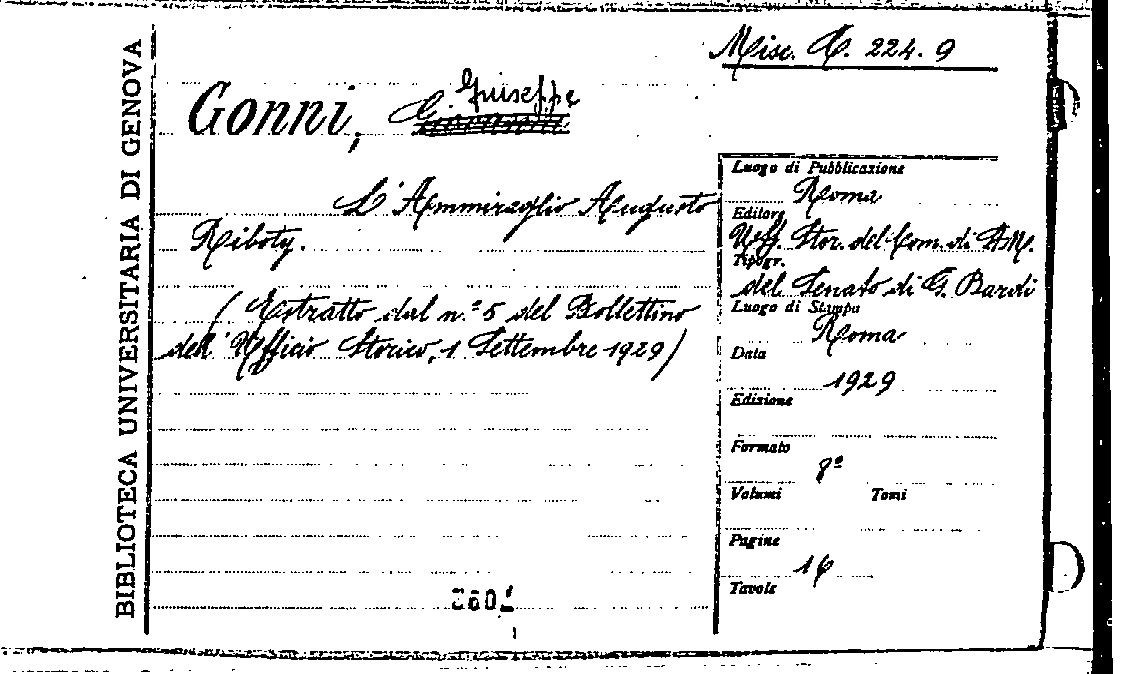 BIBLIOTECA UNIVERSITARIA DI GENOVA
Misc. C. 224. 9
Giuseppe
Gonni,
L'Ammiraglio Augusto
Riboty.
(Estratto dal n.º 5 del Bollettino
dell'Ufficio Storico, 1 Settembre 1929)
Luogo di Pubblicazione
Roma
Editore
Uff. Stor. del Com. di S. M.
Tipogr.
del Senato di G. Bardi
Luogo di Stampa
Roma
Data
1929
Edizione
Formato
8º
Volumi Tomi
Pagine
16
Tavole